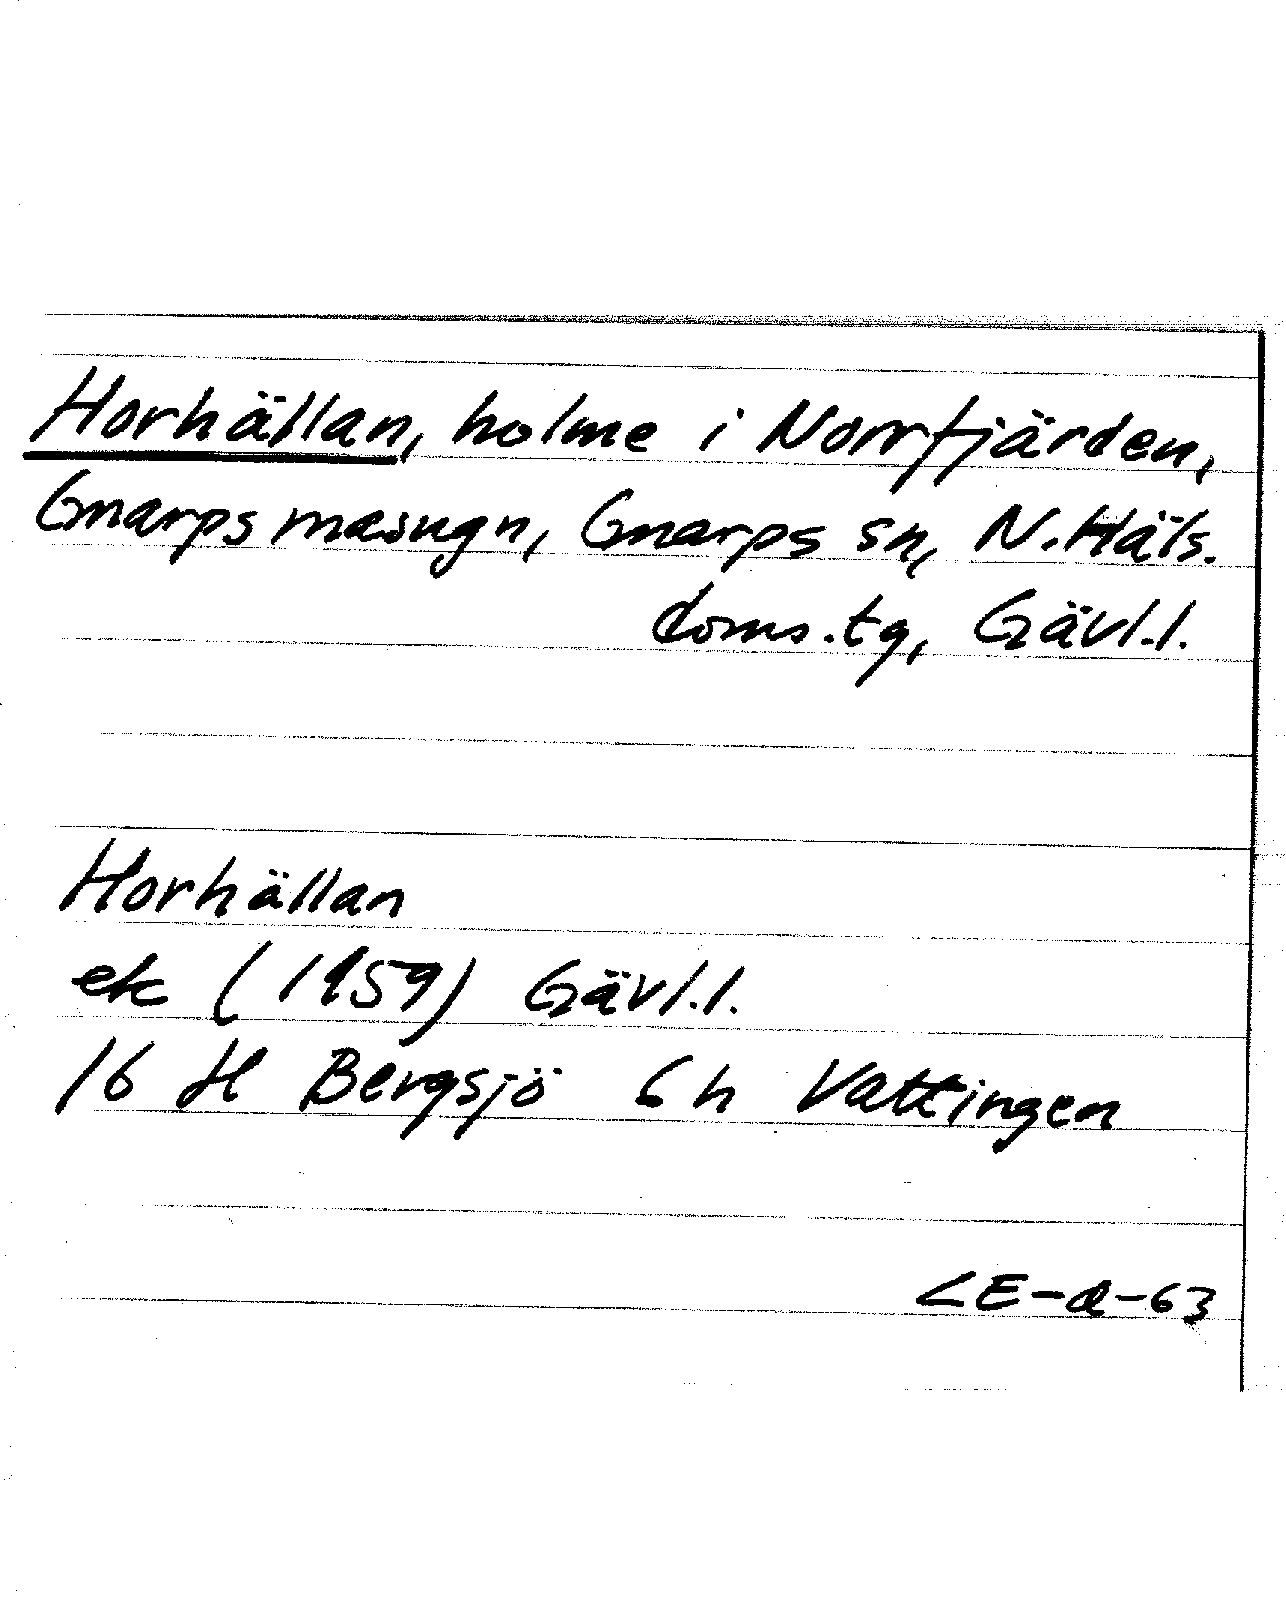 Horhällan, holme i Norrfjärden,
Gnarps masugn, Gnarps sn, N. Häls.
doms.tg, Gävl.l.
Horhällan
ek (1959) Gävl.l.
16 H Bergsjö 6 h Vattingen
CE-a-63